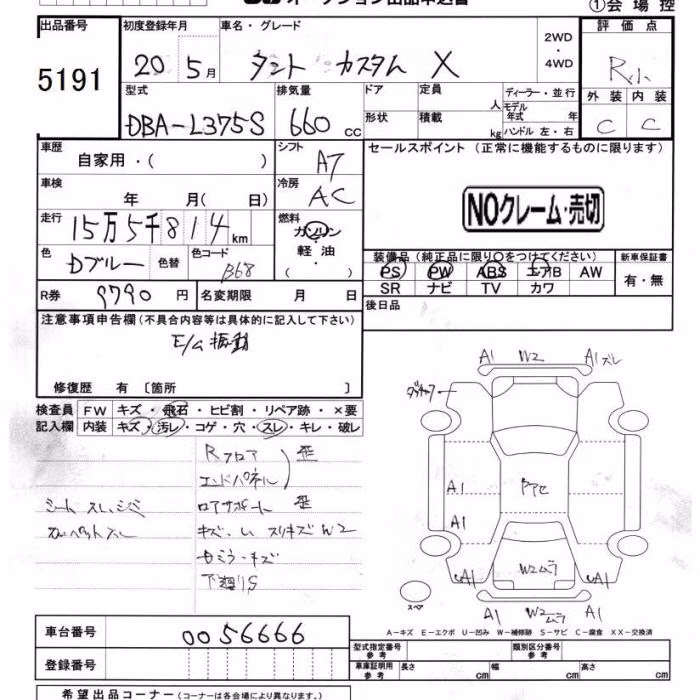 オークション出品申込書
①会場控
出品番号 初度登録年月 車名・グレード 2WD・4WD 評価点
5191 20 5月 タント カスタム X R
型式 排気量 ドア 定員 人 ディーラー・並行 外装 内装
DBA-L375S 660 cc 形状 積載 kg モデル年式 年 ハンドル 左・右 C C
車歴 自家用・( ) シフト AT セールスポイント (正常に機能するものに限ります)
車検 年 月( 日) 冷房 AC
NOクレーム・売切
走行 15万5千814km 燃料 ガソリン 軽・油 ( )
色 Dブルー 色替 色コード B68
装備品(純正品に限り〇をつけてください) 新車保証書
PS PW ABS エアB AW 有・無
SR ナビ TV カワ
R券 9790 円 名変期限 月 日
後日品
注意事項申告欄(不具合内容等は具体的に記入して下さい)
E/G 振動
修復歴 有 〔箇所 〕
検査員 FW キズ・飛石・ヒビ割・リペア跡・×要
記入欄 内装 キズ・汚レ・コゲ・穴・スレ・キレ・破レ
Rフロア 歪
エンドパネル
シート スレ、シミ ロアサポート 歪
カーペットスレ キズ・U スリキズ W2
セミラーキズ
下廻りS
A1 W2 A1 ズレ
A1
A1
A1 W2ムラ A1
A1 W2ムラ A1
スペア
A-キズ E-エクボ U-凹み W-補修跡 S-サビ C-腐食 XX-交換済
車台番号 0056666
登録番号
型式指定番号 参考 類別区分番号 参考
車庫証明用 参考 長さ cm 幅 cm 高さ cm
希望出品コーナー (コーナーは各会場により異なります)